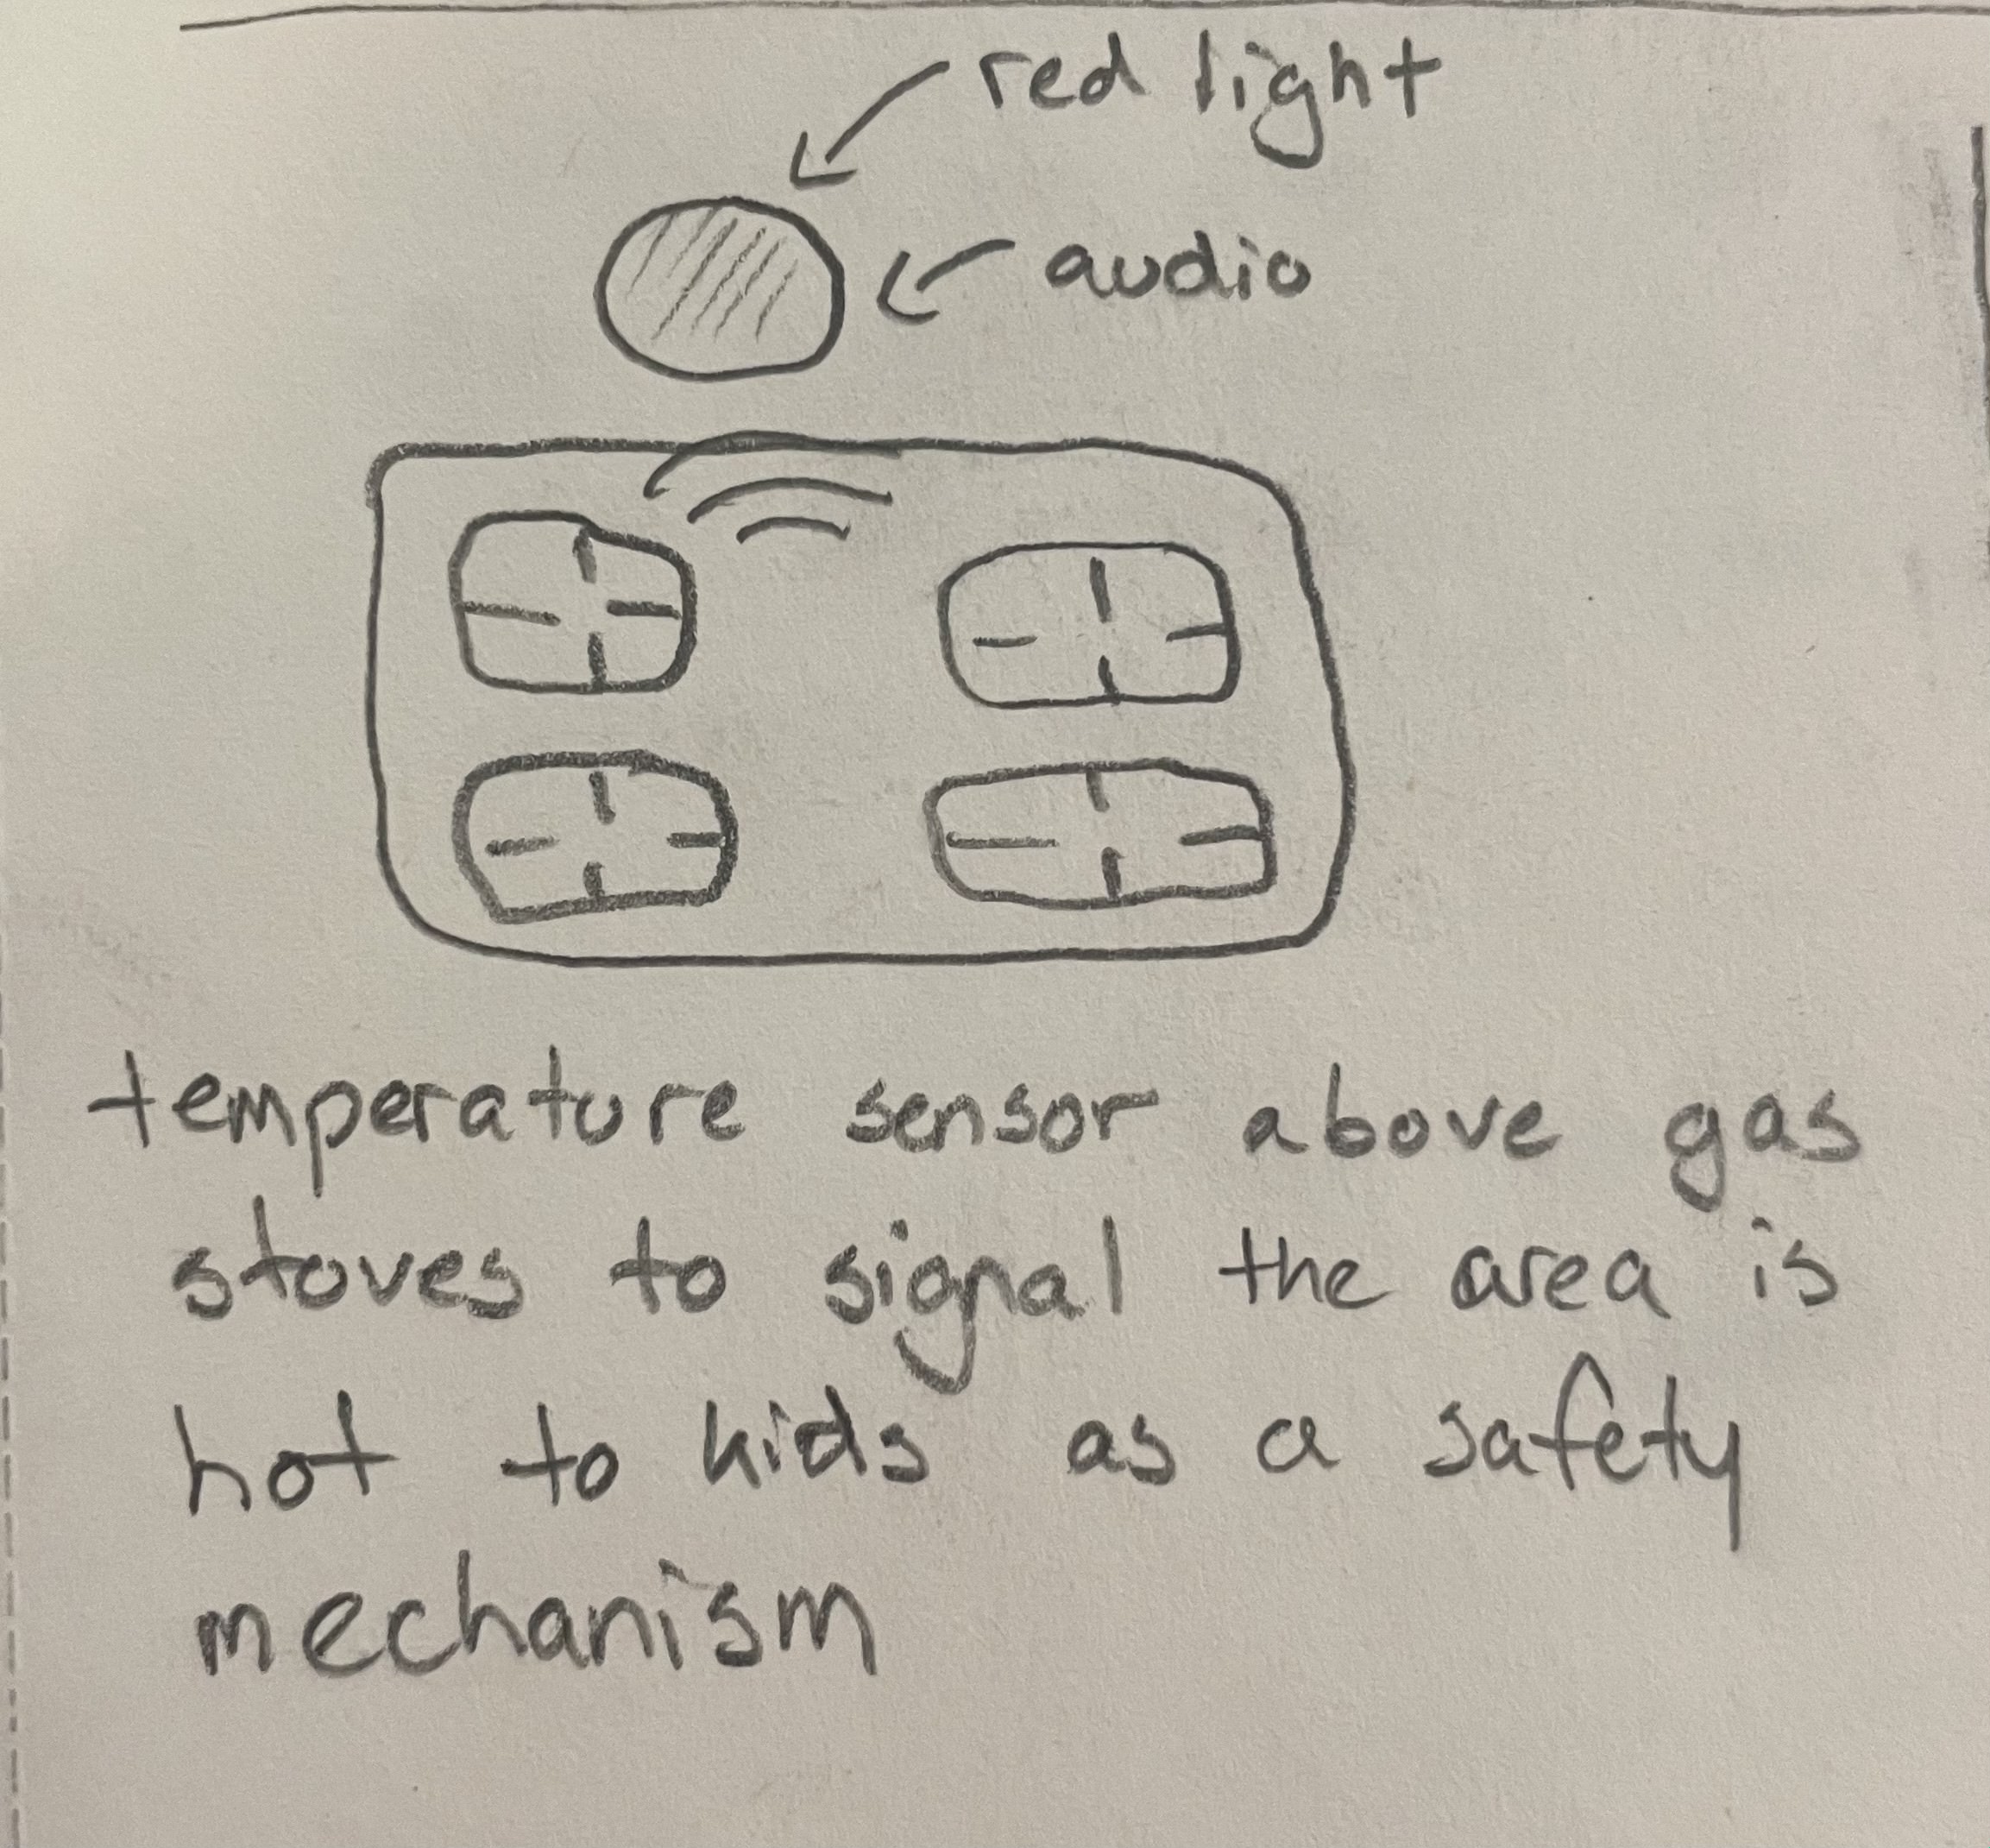 red light
audio
temperature sensor above gas
stoves to signal the area is
hot to kids as a safety
mechanism